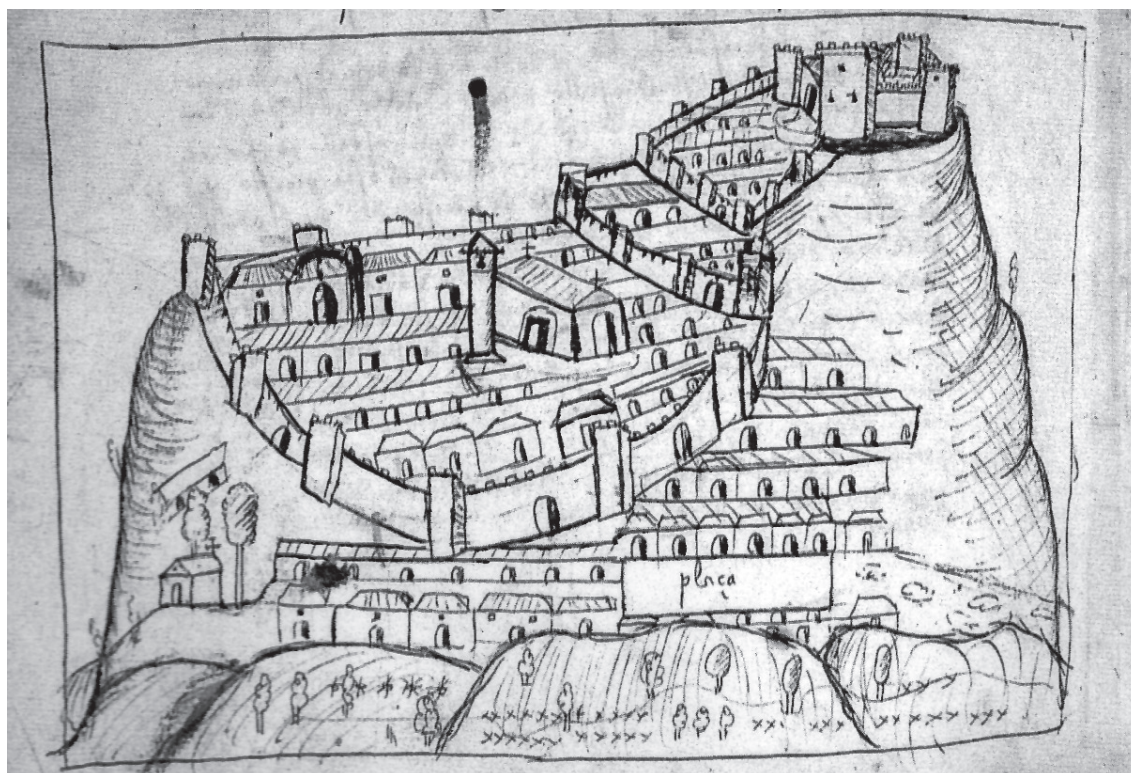 plaça